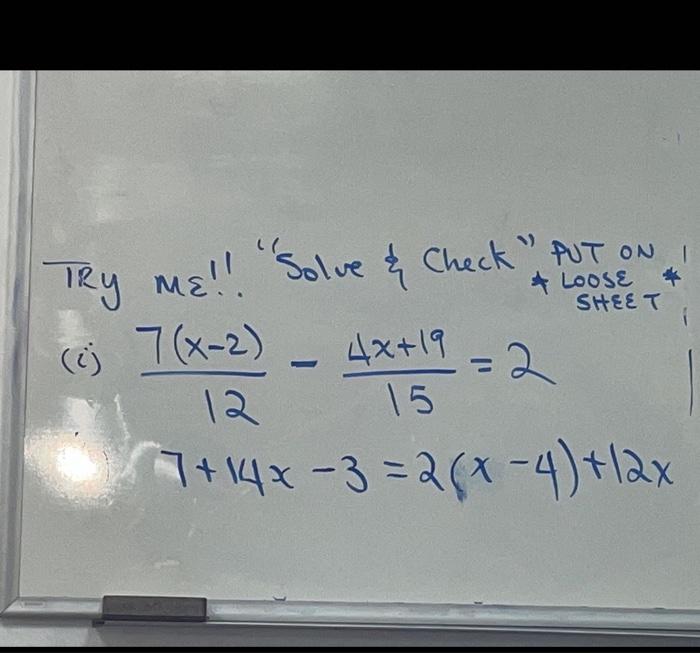 TRY ME!! "Solve & Check" PUT ON
* LOOSE *
SHEET
(i) 7(x-2)/12 - 4x+19/15 = 2
7+14x-3=2(x-4)+12x